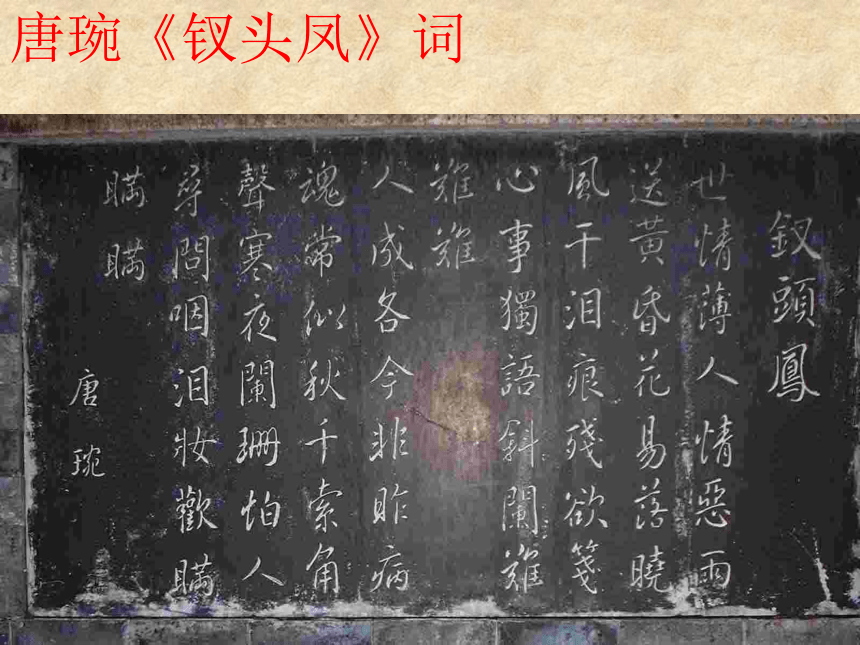 唐琬《钗头凤》词
釵頭鳳
世情薄人情惡雨
送黃昏花易落曉
風干泪痕殘欲箋
心事獨語斜闌難
難難
人成各今非昨病
魂常似秋千索角
聲寒夜闌珊怕人
尋問咽泪妝歡瞞
瞞瞞
唐琬